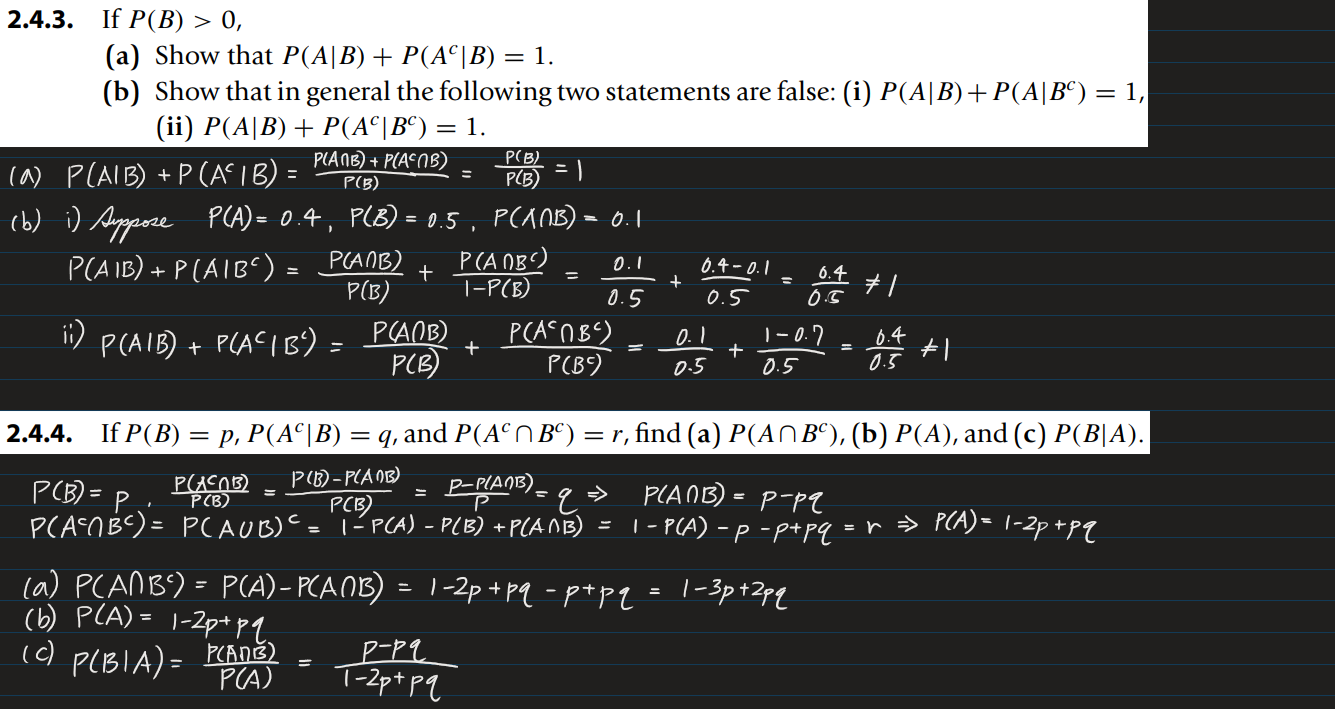 2.4.3. If P(B) > 0,
(a) Show that P(A|B) + P(Aᶜ|B) = 1.
(b) Show that in general the following two statements are false: (i) P(A|B) + P(A|Bᶜ) = 1,
(ii) P(A|B) + P(Aᶜ|Bᶜ) = 1.
(a) P(A|B) + P(Aᶜ|B) = (P(A∩B) + P(Aᶜ∩B))/P(B) = P(B)/P(B) = 1
(b) i) Suppose P(A) = 0.4, P(B) = 0.5, P(A∩B) = 0.1
P(A|B) + P(A|Bᶜ) = P(A∩B)/P(B) + P(A∩Bᶜ)/(1-P(B)) = 0.1/0.5 + (0.4-0.1)/0.5 = 0.4/0.5 ≠ 1
ii) P(A|B) + P(Aᶜ|Bᶜ) = P(A∩B)/P(B) + P(Aᶜ∩Bᶜ)/P(Bᶜ) = 0.1/0.5 + (1-0.7)/0.5 = 0.4/0.5 ≠ 1
2.4.4. If P(B) = p, P(Aᶜ|B) = q, and P(Aᶜ ∩ Bᶜ) = r, find (a) P(A∩Bᶜ), (b) P(A), and (c) P(B|A).
P(B) = p, P(Aᶜ∩B)/P(B) = (P(B)-P(A∩B))/P(B) = (p-P(A∩B))/p = q ⇒ P(A∩B) = p-pq
P(Aᶜ∩Bᶜ) = P(A∪B)ᶜ = 1-P(A)-P(B)+P(A∩B) = 1-P(A)-p-p+pq = r ⇒ P(A) = 1-2p+pq
(a) P(A∩Bᶜ) = P(A)-P(A∩B) = 1-2p+pq-p+pq = 1-3p+2pq
(b) P(A) = 1-2p+pq
(c) P(B|A) = P(A∩B)/P(A) = (p-pq)/(1-2p+pq)